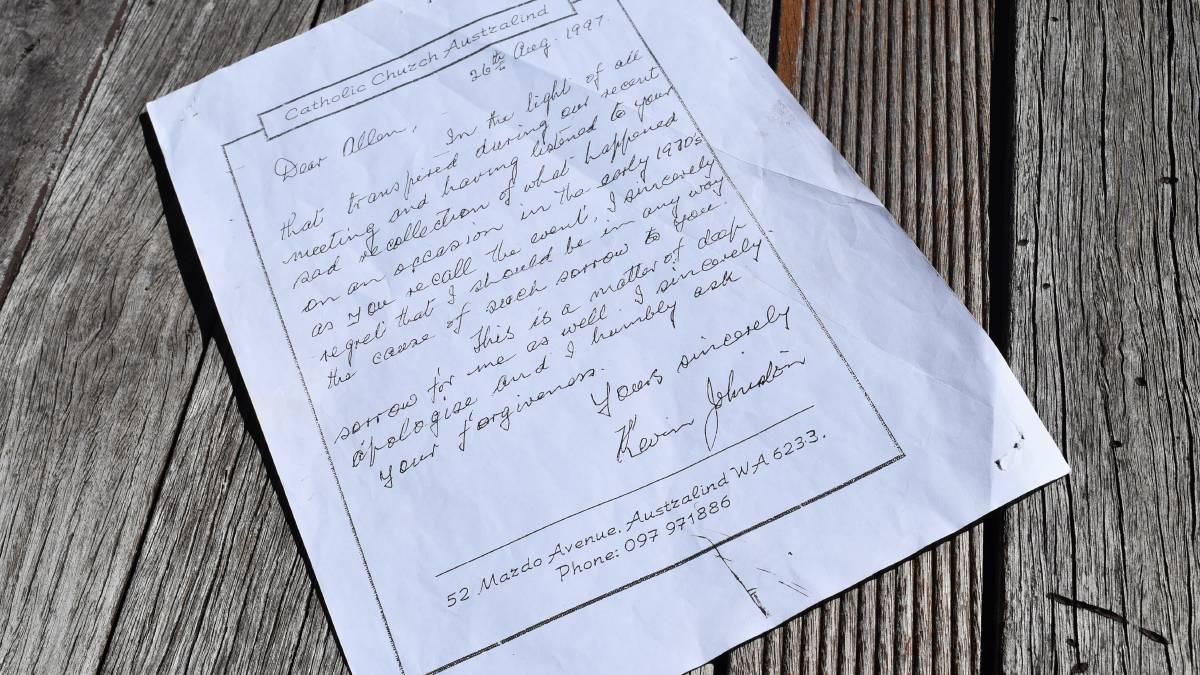 Catholic Church Australind
26th Aug. 1997.
Dear Allen, In the light of all
that transpired during our recent
meeting and having listened to your
sad recollection of what happened
on an occasion in the early 1970's
as you recall the event, I sincerely
regret that I should be in any way
the cause of such sorrow to you.
This is a matter of deep
sorrow for me as well. I sincerely
apologise and I humbly ask
your forgiveness.
Yours sincerely
Kevin Johnston
52 Mardo Avenue, Australind WA 6233.
Phone: 097 971886